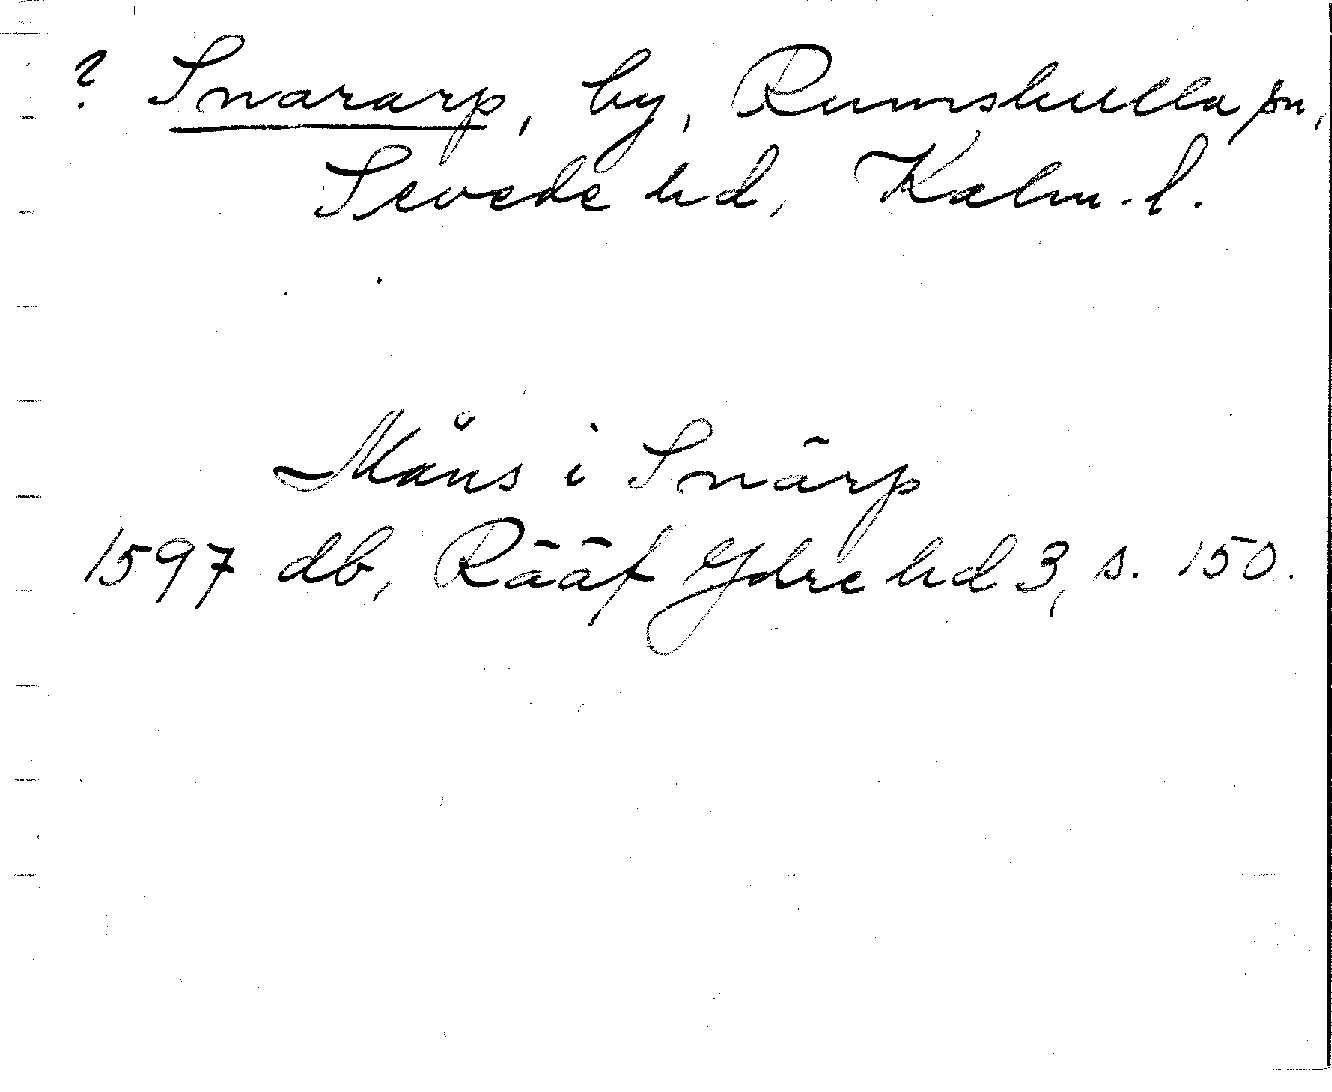 ? Snararp, by, Rumskulla sn,
Sevede hd, Kalm. l.
Måns i Snärp
1597 db, Rääf Ydre hd 3, s. 150.